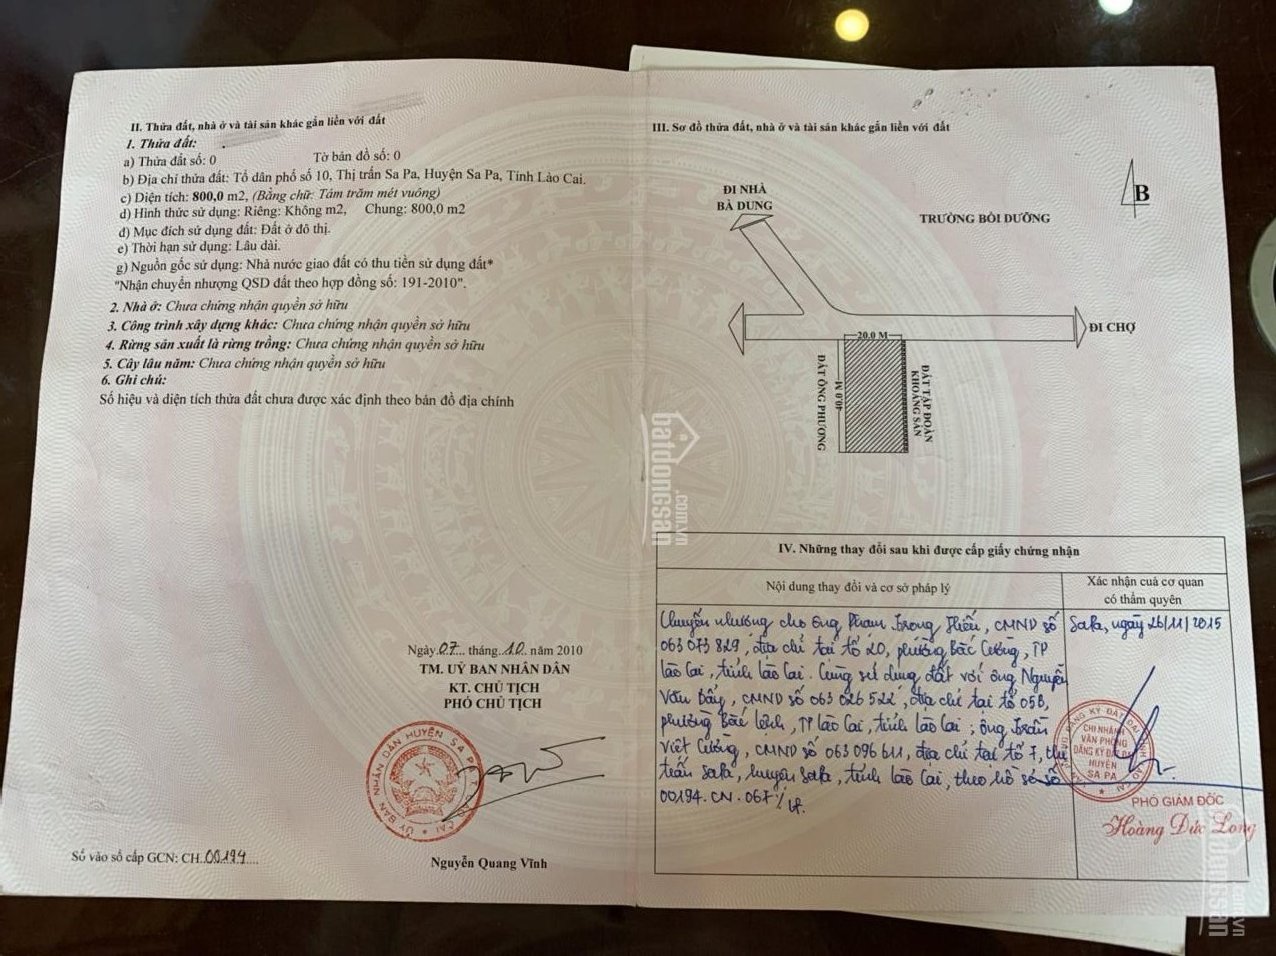 II. Thửa đất, nhà ở và tài sản khác gắn liền với đất
1. Thửa đất:
a) Thửa đất số: 0 Tờ bản đồ số: 0
b) Địa chỉ thửa đất: Tổ dân phố số 10, Thị trấn Sa Pa, Huyện Sa Pa, Tỉnh Lào Cai.
c) Diện tích: 800,0 m2, (Bằng chữ: Tám trăm mét vuông)
d) Hình thức sử dụng: Riêng: Không m2, Chung: 800,0 m2
đ) Mục đích sử dụng đất: Đất ở đô thị.
e) Thời hạn sử dụng: Lâu dài.
g) Nguồn gốc sử dụng: Nhà nước giao đất có thu tiền sử dụng đất*
"Nhận chuyển nhượng QSD đất theo hợp đồng số: 191-2010".
2. Nhà ở: Chưa chứng nhận quyền sở hữu
3. Công trình xây dựng khác: Chưa chứng nhận quyền sở hữu
4. Rừng sản xuất là rừng trồng: Chưa chứng nhận quyền sở hữu
5. Cây lâu năm: Chưa chứng nhận quyền sở hữu
6. Ghi chú:
Số hiệu và diện tích thửa đất chưa được xác định theo bản đồ địa chính
Ngày 07 tháng 10 năm 2010
TM. UỶ BAN NHÂN DÂN
KT. CHỦ TỊCH
PHÓ CHỦ TỊCH
ỦY BAN NHÂN DÂN HUYỆN SA PA
LÀO CAI
Nguyễn Quang Vĩnh
Số vào sổ cấp GCN: CH 00194
III. Sơ đồ thửa đất, nhà ở và tài sản khác gắn liền với đất
B
ĐI NHÀ
BÀ DUNG
TRƯỜNG BỒI DƯỠNG
ĐI CHỢ
20.0 M
40.0 M
ĐẤT ÔNG PHƯƠNG
ĐẤT TẬP ĐOÀN
KHOÁNG SẢN
batdongsan
.com.vn
IV. Những thay đổi sau khi được cấp giấy chứng nhận
Nội dung thay đổi và cơ sở pháp lý
Xác nhận của cơ quan
có thẩm quyền
Chuyển nhượng cho ông Phạm Trọng Thiếu, CMND số
063 073 829, địa chỉ tại tổ 20, phường Bắc Cường, TP
Lào Cai, tỉnh Lào Cai. Cùng sử dụng đất với ông Nguyễn
Văn Đẩy, CMND số 063 026 522, địa chỉ tại tổ 05B,
phường Bắc Lệnh, TP Lào Cai, tỉnh Lào Cai; ông Trần
Việt Cường, CMND số 063 096 611, địa chỉ tại tổ 7, thị
trấn Sa Pa, huyện Sa Pa, tỉnh Lào Cai, theo hồ sơ số
00194.CN.067
SaPa, ngày 26/11/2015
CHI NHÁNH
VĂN PHÒNG
ĐĂNG KÝ ĐẤT ĐAI
HUYỆN
SA PA
PHÓ GIÁM ĐỐC
Hoàng Đức Long
batdongsan
.com.vn